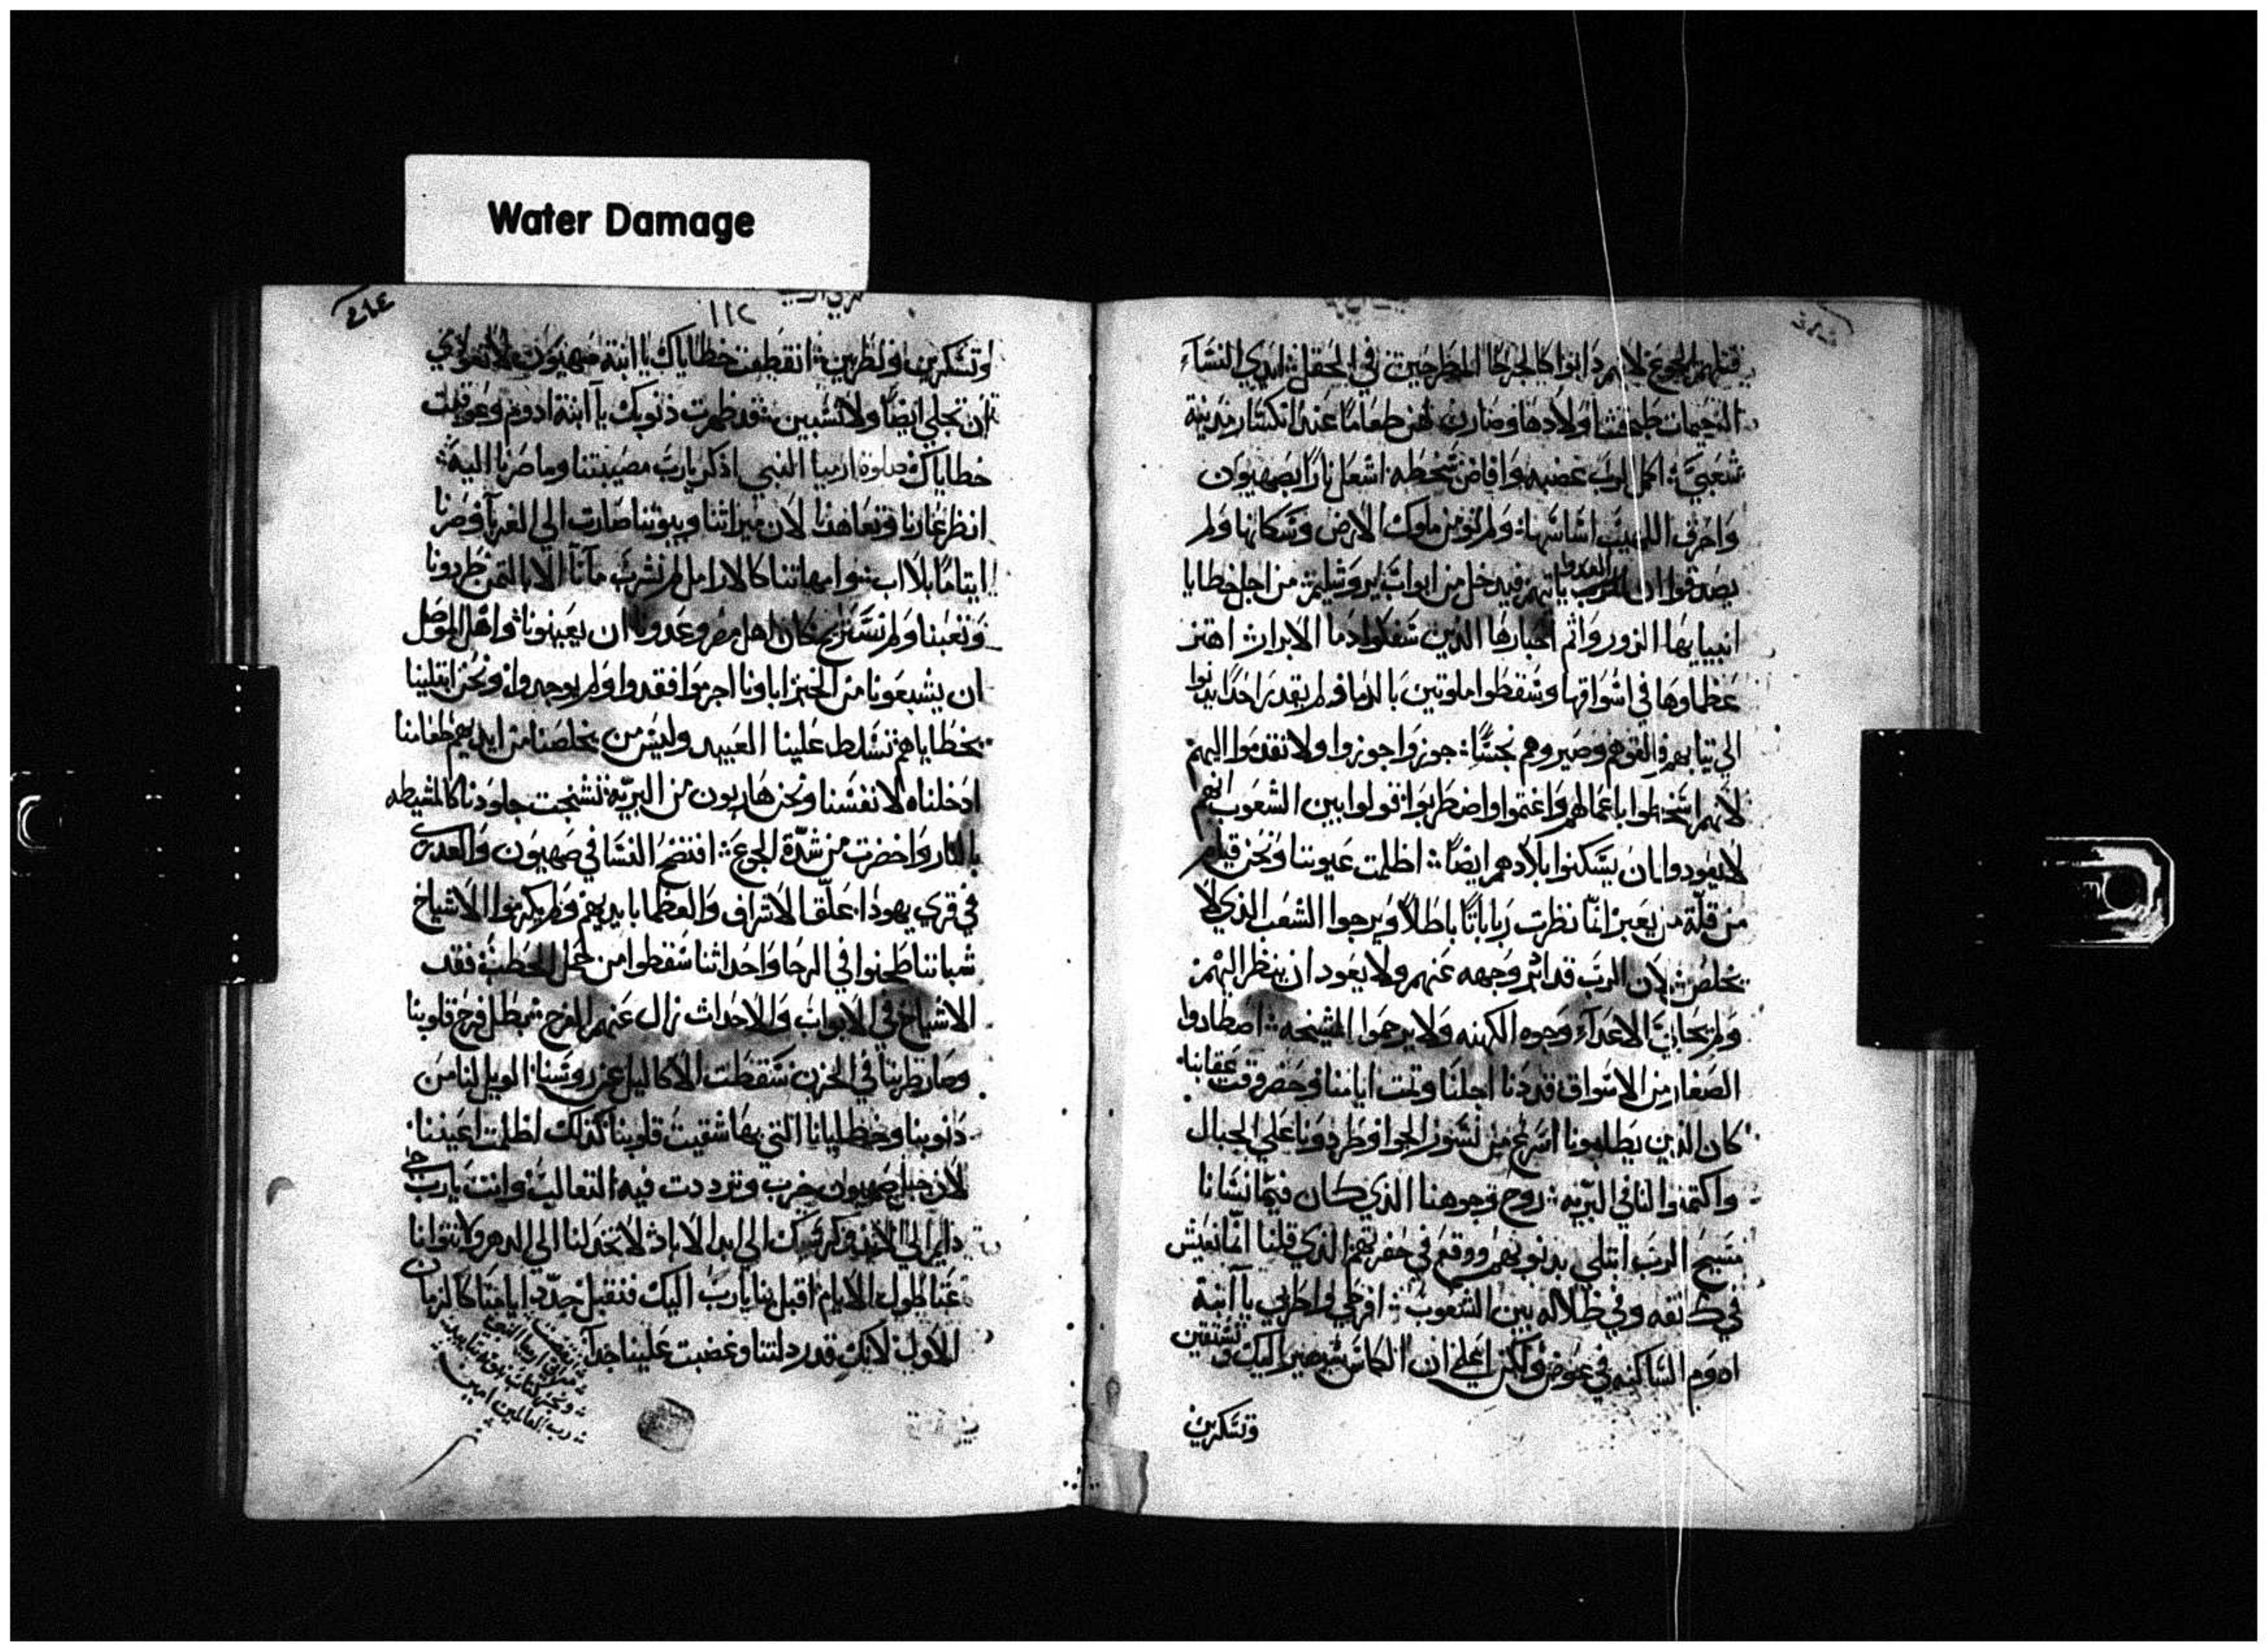 Water Damage
قتلهم الجوع لانهم دابوا كالجرحا المطرحين في الحقل ايدي النسآء
الرحيمات طبخت اولادها وصاروا لهن طعاما عند انكسار مدينة
شعبي اكمل الرب غضبه وافاض سخطه اشعل نارا بصهيون
واحرق اللهيب اساسها ولم تومن ملوك الارض وسكانها ولم
يصدقوا ان العدو ياتيهم فيدخل من ابواب يروشليم من اجل خطايا
انبيايها الزور واثم احبارها الذين سفكوا دما الابرار اهتز
عظماوها في اسواقها وسقطوا ملوتين بالدما ولم يقدر احدا يدنوا
الي تيابهم القوهم وصيروهم نجسا جوزوا جوزوا ولا تقدموا اليهم
لانهم اسخطوا باعمالهم واغتموا واضطربوا قولوا بين الشعوب انهم
لا يعودوا ان يسكنوا بلادهم ايضا اظلمت عيوننا ونحن قيام
من قلة من يعبر انما نظرت رباباتنا باطلا ويرجوا الشعب الذي لا
يخلص لان الرب قد اثر وجهه عنهم ولا يعود ان ينظر اليهم
ولم تحابي الاعدآء وجوه الكهنه ولا يرحموا المشيخه اصطادوا
الصغار من الاسواق قد دنا اجلنا وتمت ايامنا وحضر وقت عقابنا
كان الذين يطلبونا اسرع من نسور الجوا وطردونا علي الجبال
واكتمنوا لنا في البريه روح وجوهنا الذي كان فيما نشانا
مسيح الرب ابتلي بدنوبهم ووقع في حفرتهم الذي قلنا انما نعيش
في كنفه وفي ظلاله بين الشعوب افرحي واطربي يا ابنة
ادوم الساكنه في عوض ولكن اعلمي ان الكاس سيصير اليك وتستقين
وتسكرين
١١٢
وتسكرين وتطربين انقطعت خطاياك يا ابنة صهيون لا تعودي
ان تجلي ايضا ولا تسبين قد ظهرت ذنوبك يا ابنة ادوم وعوقبت
خطاياك صلوة ارميا النبي اذكر يارب مصيبتنا وما صرنا اليه
انظر عارنا وتعاهدنا لان ميراثنا وبيوتنا صارت الي الغربآ وصرنا
ايتاما بلا اب امهاتنا كالارامل لم نشرب مآنا الا بالتمن طردونا
وتعبنا ولم نستريح كان اهل مصر وعدونا ان يعينونا واهل الموصل
ان يشبعونا من الخبز اباونا اجرموا فقدوا ولم يوجدوا ونحن ابتلينا
بخطاياهم تسلط علينا العبيد وليس من يخلصنا من ايديهم طعامنا
ادخلناه لانفسنا ونحن هاربون من البريه تشنجت جلودنا كالمشيطه
بالنار واخضرت من شدة الجوع افتضح النسا في صهيون والعدري
في قري يهودا علق الاشراف والعظما بايديهم ولم يكرموا الاشياخ
شباننا طحنوا في الرحا واحداثنا سقطوا من حمل الحطب فقد
الاشياخ في الابواب والاحداث زال عنهم الفرح بطل فرح قلوبنا
وصار طربنا في الحزن سقطت الاكاليل عن روسنا الويل لنا من
دنوبنا وخطايانا التي بها شقيت قلوبنا كذلك اظلمت اعيننا
لان جبل صهيون خرب وترددت فيه التعالب وانت يارب حي
دايم الي الابد وكرسيك الي ابد الاباد لا تخدلنا الي الدهر ولا تتوانا
عنا طول الايام اقبل بنا يارب اليك فنقبل جدد ايامنا كالزمان
الاول لانك قد ردلتنا وغضبت علينا جدا
انقضت
مراتي ارميا النبي
رب العالمين امين